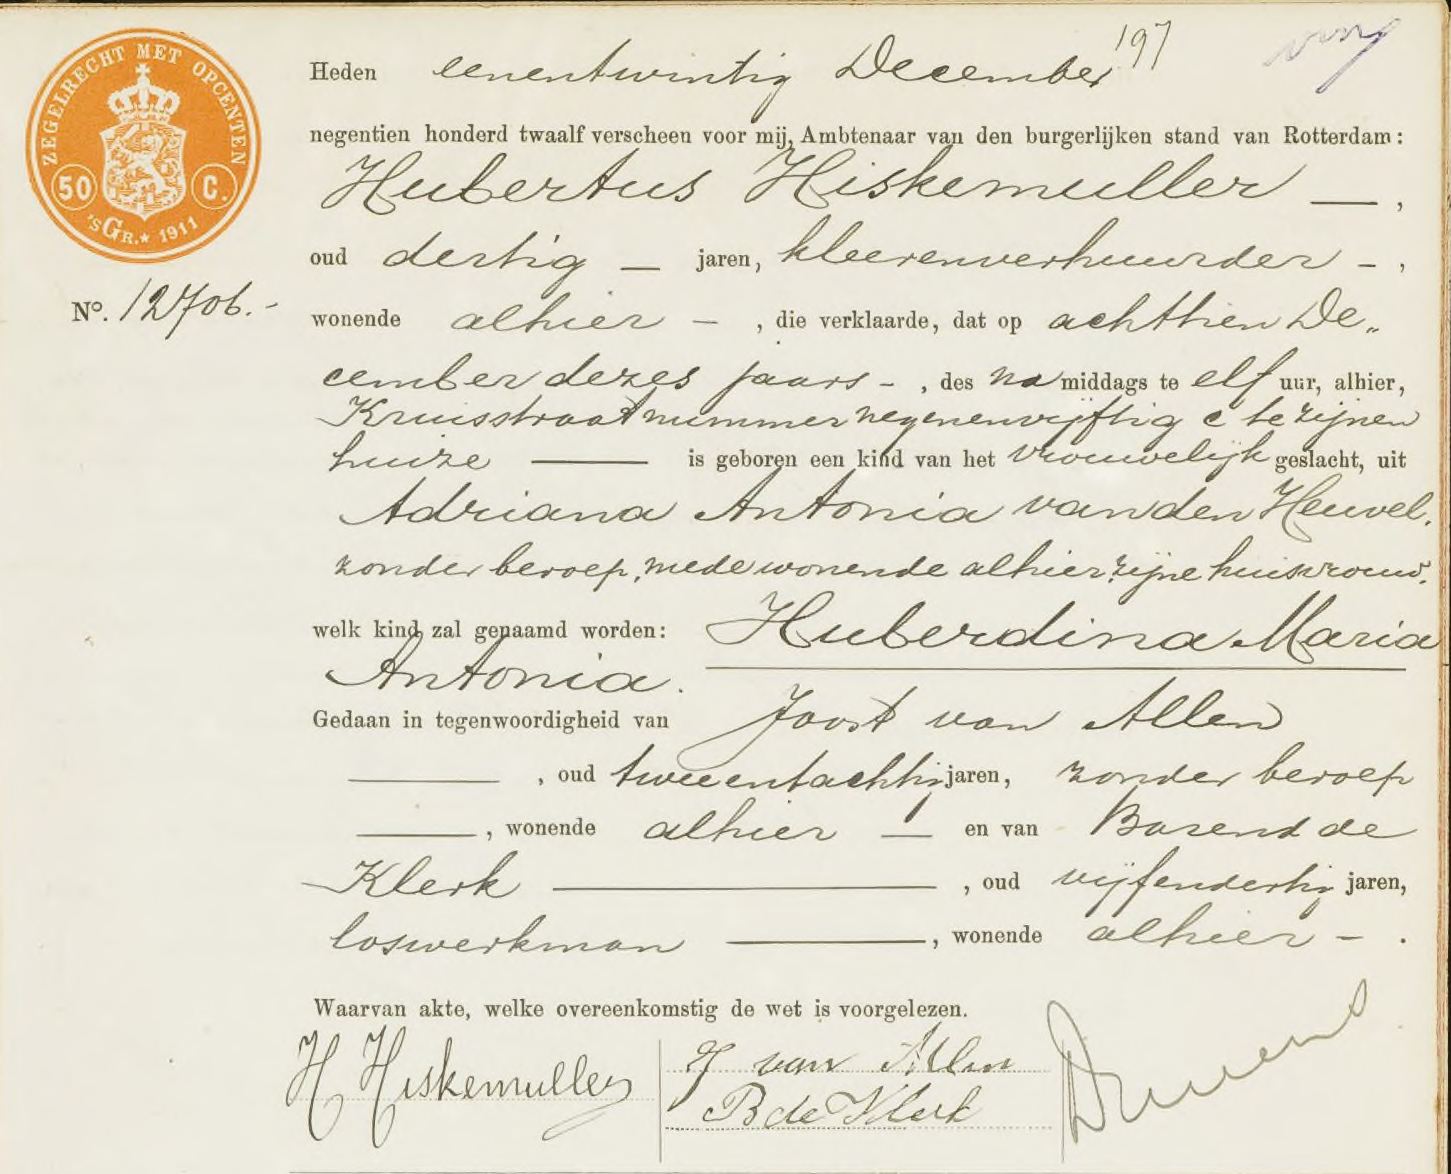 ZEGELRECHT MET OPCENTEN
50 C.
'sGR.★ 1911
197
Heden eenentwintig December
negentien honderd twaalf verscheen voor mij, Ambtenaar van den burgerlijken stand van Rotterdam:
Hubertus Hiskemuller —,
oud dertig — jaren, kleerenverhuurder -,
No. 12706.-
wonende alhier - , die verklaarde, dat op achttien De„
cember dezes jaars - , des na middags te elf uur, alhier,
Kruisstraat nummer negenenvijftig c te zijnen
huize — is geboren een kind van het vrouwelijk geslacht, uit
Adriana Antonia van den Heuvel,
zonder beroep, mede wonende alhier, zijne huisvrouw,
welk kind zal genaamd worden: Huberdina Maria
Antonia.
Gedaan in tegenwoordigheid van Joost van Allen
—, oud tweeentachtig jaren, zonder beroep
—, wonende alhier — en van Barend de
Klerk —, oud vijfendertig jaren,
loswerkman —, wonende alhier - .
Waarvan akte, welke overeenkomstig de wet is voorgelezen.
H Hiskemuller
J van Allen
B de Klerk